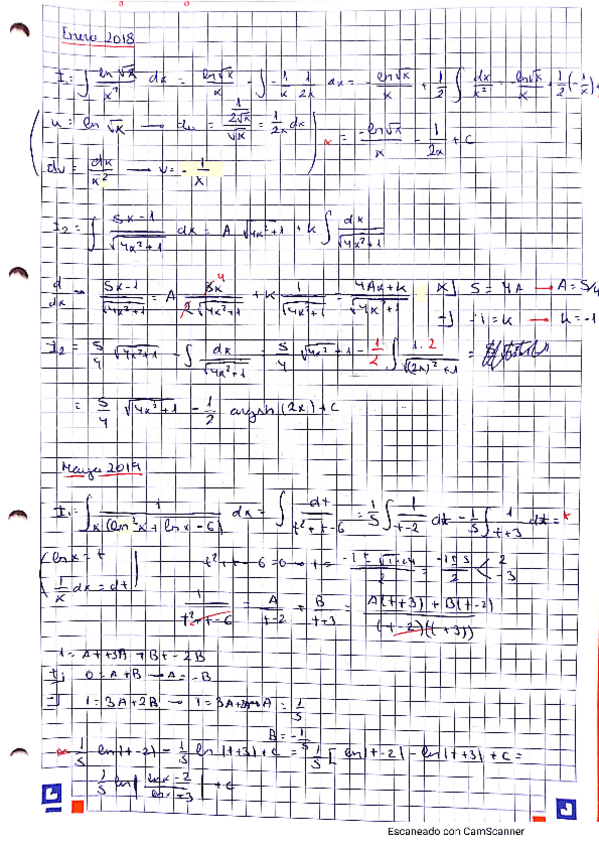 Enero 2018
I₁ = ∫ ln√x / x² dx = - ln√x / x - ∫ - 1/x · 1/2x dx = - ln√x / x + 1/2 ∫ dx/x² = - ln√x / x + 1/2 (-1/x) +
u = ln √x → du = (1/2√x)/√x = 1/2x dx
* = -ln√x / x - 1/2x + C
dv = dx/x² → v = - 1/x
I₂ = ∫ 5x-1 / √4x²+1 dx = A √4x²+1 + k ∫ dx / √4x²+1
d/dx → 5x-1 / √4x²+1 = A 8x / 2√4x²+1 + k 1 / √4x²+1 = 4Ax+k / √4x²+1 x] 5 = 4A → A = 5/4
-] -1 = k → k = -1
I₂ = 5/4 √4x²+1 - ∫ dx / √4x²+1 = 5/4 √4x²+1 - 1/2 ∫ 1·2 / √(2x)²+1 =
= 5/4 √4x²+1 - 1/2 argsh (2x) + C
Mayo 2019
I₁ = ∫ 1 / x(ln²x + lnx - 6) dx = ∫ dt / t²+t-6 = 1/5 ∫ 1/t-2 dt - 1/5 ∫ 1/t+3 dt = *
lnx = t
1/x dx = dt
t²+t-6=0 → t = -1±√1+24 / 2 = -1±5 / 2 < 2 -3
1 / t²+t-6 = A/t-2 + B/t+3 = A(t+3)+B(t-2) / (t-2)(t+3)
1 = At+3A + Bt-2B
t] 0 = A+B → A = -B
-] 1 = 3A+2B → 1 = 3A+2A → A = 1/5
B = -1/5
* 1/5 ln|t-2| - 1/5 ln|t+3| + C = 1/5 [ ln|t-2| - ln|t+3| + C =
1/5 ln| lnx-2 / lnx+3 | + C
Escaneado con CamScanner